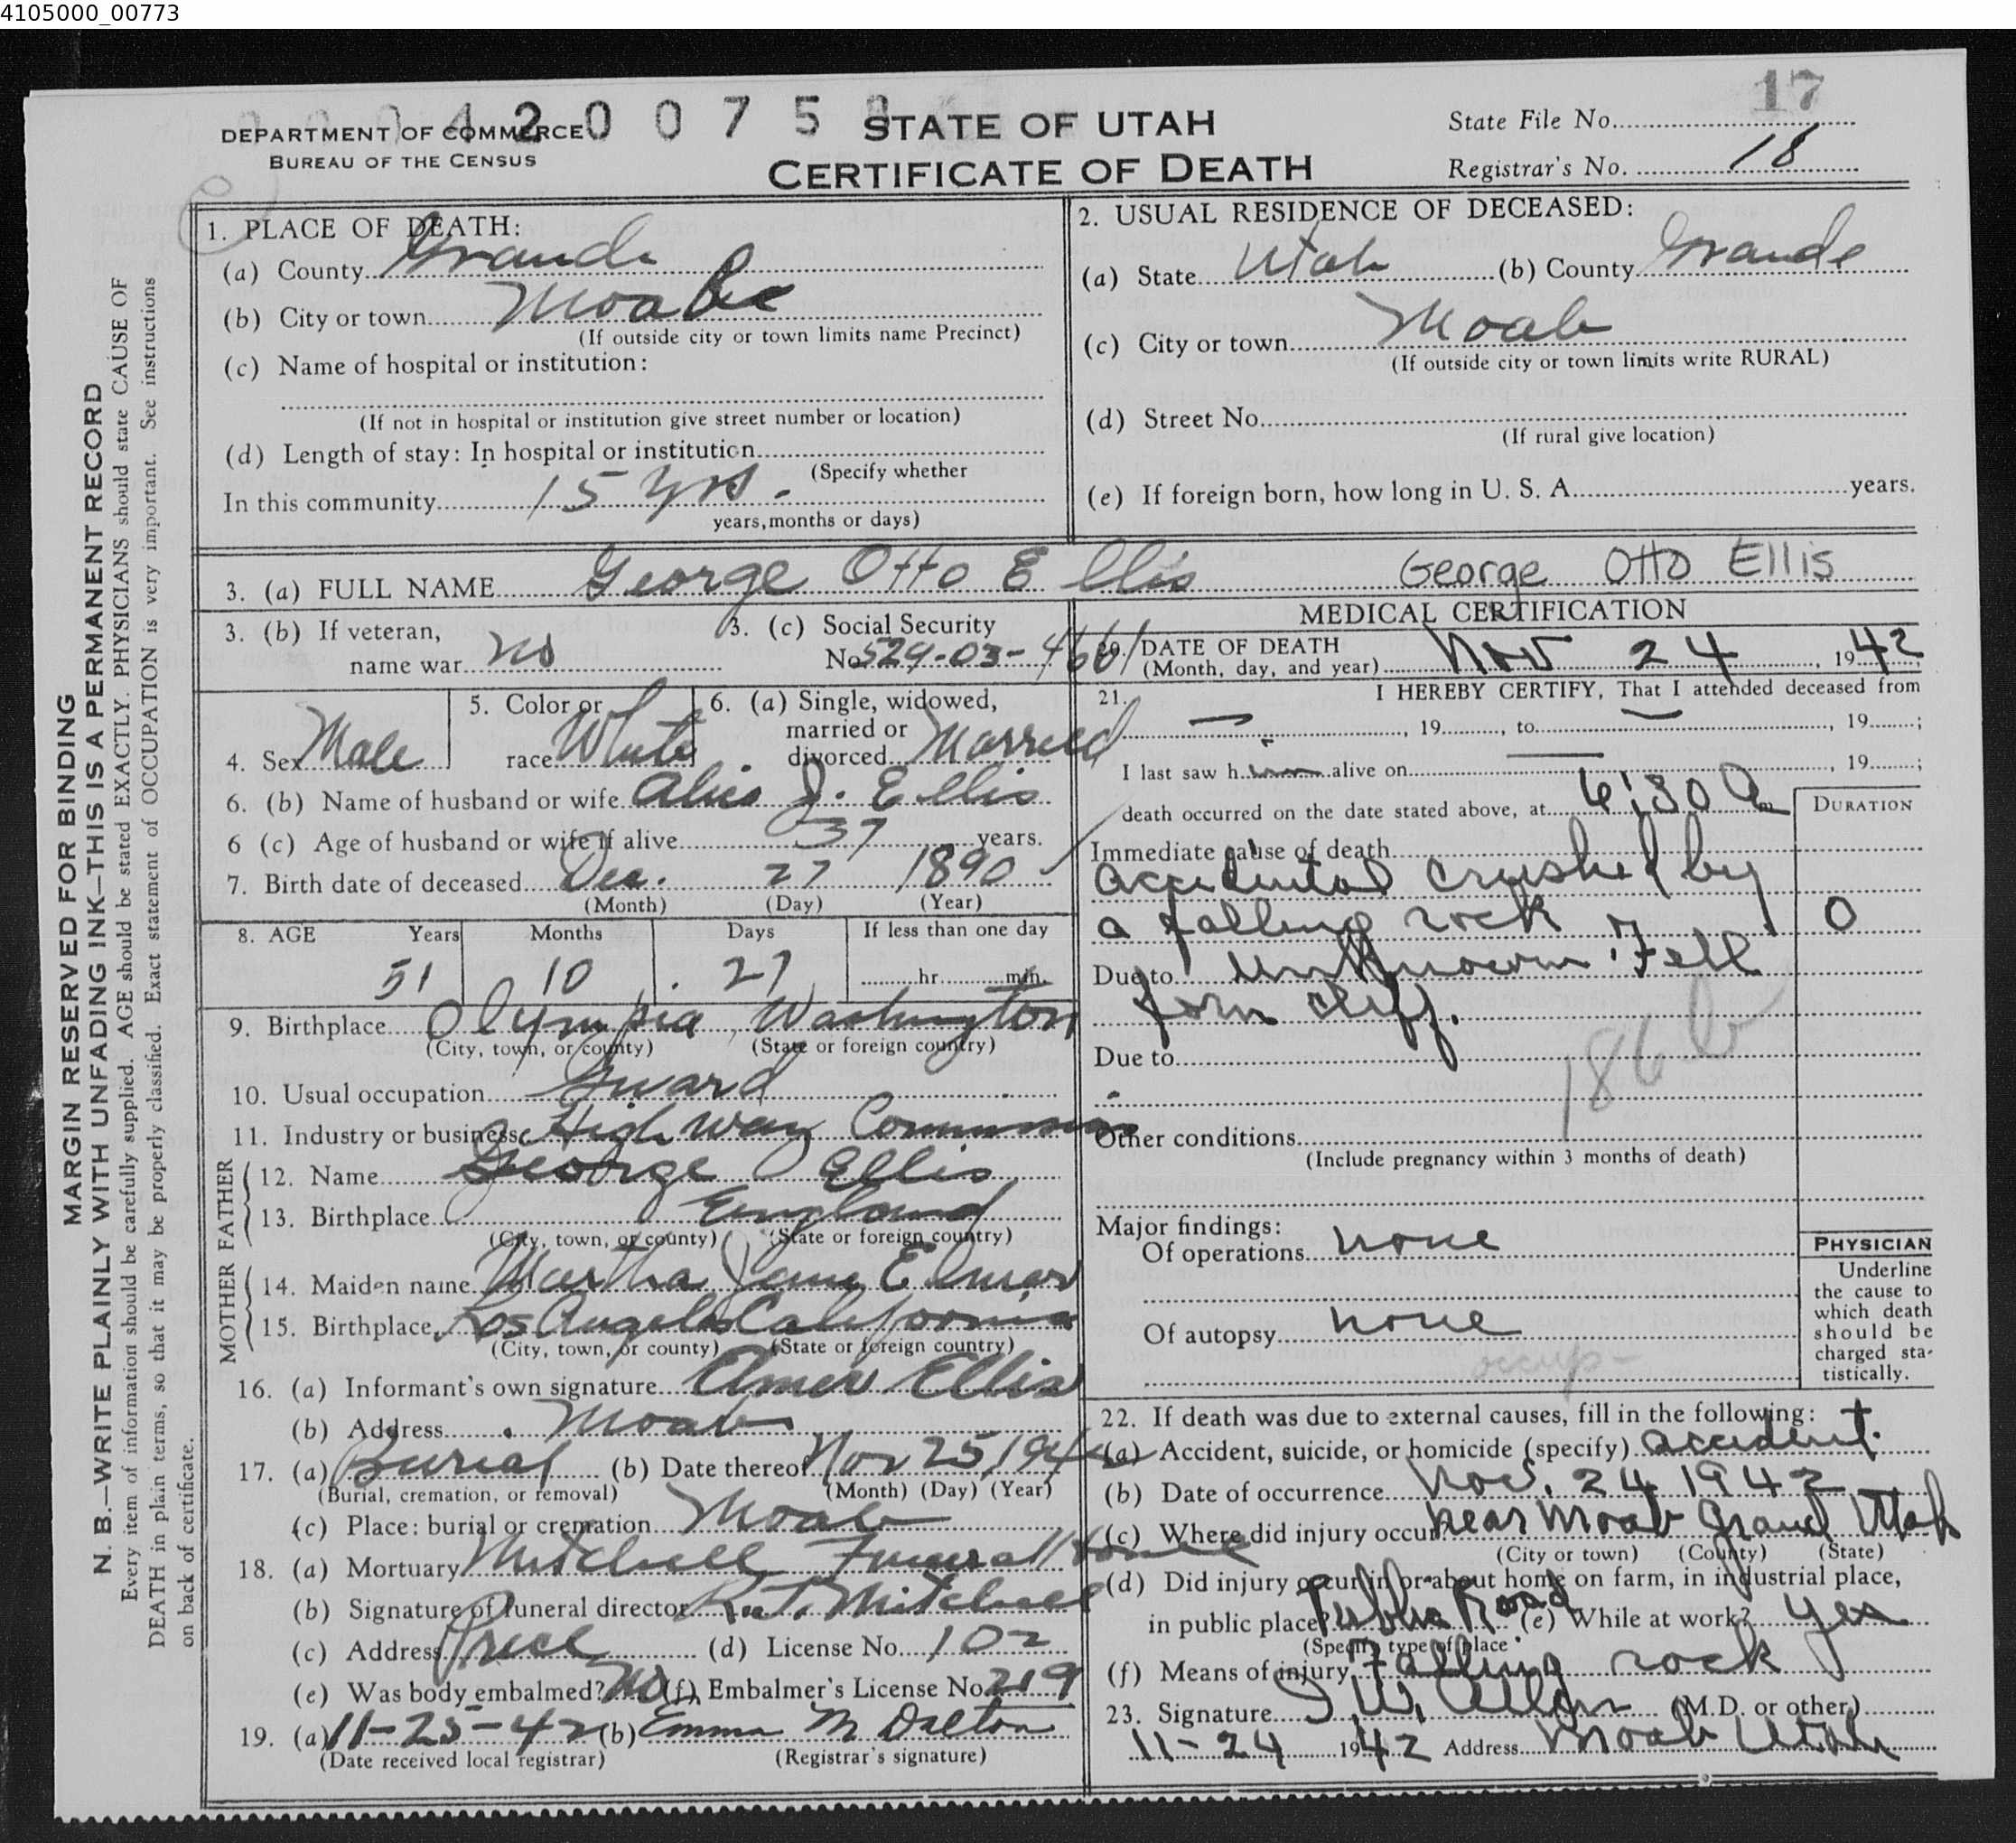 4105000_00773
17
0 0 0 4 2 0 0 7 5 8
DEPARTMENT OF COMMERCE
BUREAU OF THE CENSUS
STATE OF UTAH
CERTIFICATE OF DEATH
State File No.
Registrar's No. 18
MARGIN RESERVED FOR BINDING
N. B.—WRITE PLAINLY WITH UNFADING INK—THIS IS A PERMANENT RECORD
Every item of information should be carefully supplied. AGE should be stated EXACTLY. PHYSICIANS should state CAUSE OF
DEATH in plain terms, so that it may be properly classified. Exact statement of OCCUPATION is very important. See instructions
on back of certificate.
1. PLACE OF DEATH:
(a) County Grand
(b) City or town Moab
(If outside city or town limits name Precinct)
(c) Name of hospital or institution:
(If not in hospital or institution give street number or location)
(d) Length of stay: In hospital or institution
(Specify whether
In this community 15 yrs.
years, months or days)
2. USUAL RESIDENCE OF DECEASED:
(a) State Utah (b) County Grande
(c) City or town Moab
(If outside city or town limits write RURAL)
(d) Street No.
(If rural give location)
(e) If foreign born, how long in U. S. A. years.
3. (a) FULL NAME George Otto Ellis George Otto Ellis
3. (b) If veteran,
name war no
3. (c) Social Security
No. 529-03-4661
4. Sex Male
5. Color or
race White
6. (a) Single, widowed,
married or
divorced Married
6. (b) Name of husband or wife Alice J. Ellis
6 (c) Age of husband or wife if alive 37 years.
7. Birth date of deceased Dec. 27 1890
(Month) (Day) (Year)
8. AGE Years Months Days If less than one day
51 10 27 hr. min.
9. Birthplace Olympia, Washington
(City, town, or county) (State or foreign country)
10. Usual occupation Guard
11. Industry or business Highway Commission
FATHER
12. Name George Ellis
13. Birthplace England
(City, town, or county) (State or foreign country)
MOTHER
14. Maiden name Martha Jane Elmer
15. Birthplace Los Angeles California
(City, town, or county) (State or foreign country)
16. (a) Informant's own signature Elmer Ellis
(b) Address Moab
17. (a) Burial (b) Date thereof Nov 25, 1942
(Burial, cremation, or removal) (Month) (Day) (Year)
(c) Place: burial or cremation Moab
18. (a) Mortuary Mitchell Funeral Home
(b) Signature of funeral director R. T. Mitchell
(c) Address Price (d) License No. 102
(e) Was body embalmed? No (f) Embalmer's License No. 219
19. (a) 11-25-42 (b) Emma M Dalton
(Date received local registrar) (Registrar's signature)
MEDICAL CERTIFICATION
20. DATE OF DEATH
(Month, day, and year) Nov 24, 1942
21. I HEREBY CERTIFY, That I attended deceased from
— , 19 , to — , 19 ;
I last saw him alive on — , 19 ;
death occurred on the date stated above, at 6:30 A m
DURATION
Immediate cause of death
accidental crushed by
a falling rock 0
Due to unknown. Fell
form cliff.
Due to
186 b
Other conditions
(Include pregnancy within 3 months of death)
Major findings:
Of operations none
Of autopsy none
occup-
PHYSICIAN
Underline
the cause to
which death
should be
charged sta-
tistically.
22. If death was due to external causes, fill in the following:
(a) Accident, suicide, or homicide (specify) accident.
(b) Date of occurrence Nov. 24 1942
(c) Where did injury occur? near Moab Grand Utah
(City or town) (County) (State)
(d) Did injury occur in or about home on farm, in industrial place,
in public place? Public Road (e) While at work? yes
(Specify type of place)
(f) Means of injury Falling rock
23. Signature I. W. Allen (M.D. or other)
11-24 1942 Address Moab Utah